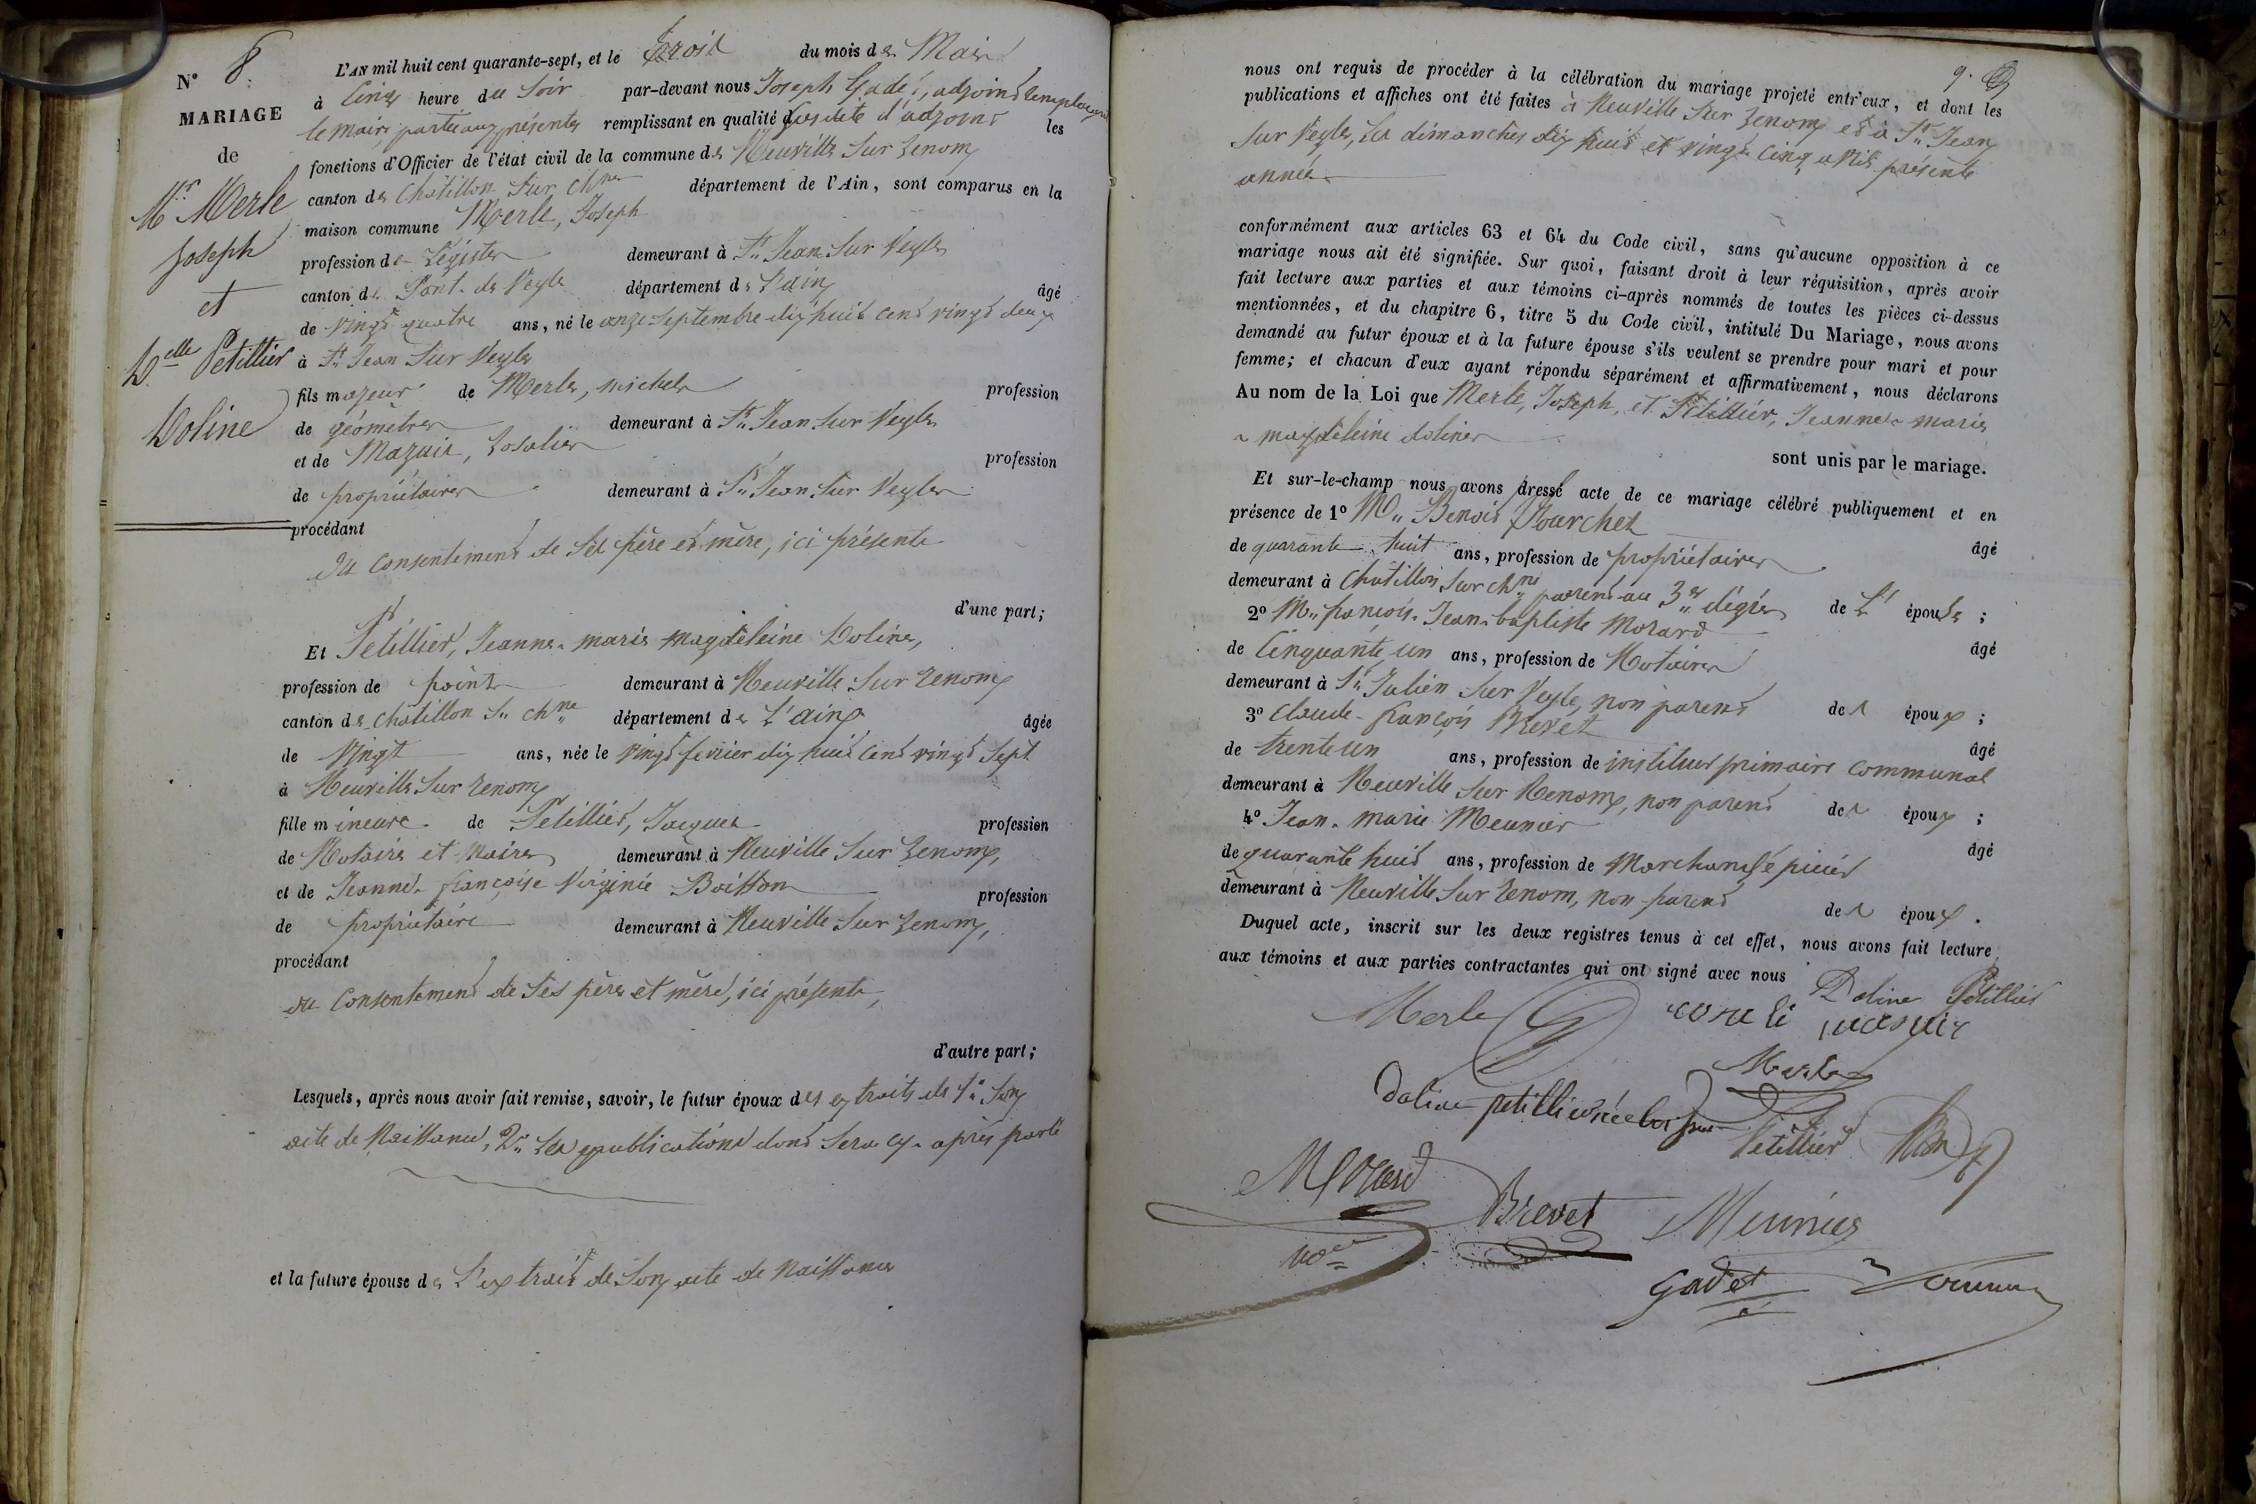 N° 8.
MARIAGE
de
Mr. Merle
Joseph
et
Delle Petillier
Doline
L'AN mil huit cent quarante-sept, et le trois du mois de Mai
à Cinq heure du Soir par-devant nous Joseph Gadet, adjoint remplaçant
le maire, partie aux présentes remplissant en qualité d'adjoint les
fonctions d'Officier de l'état civil de la commune de Neuville sur Renom
canton de Châtillon sur Chne département de l'Ain, sont comparus en la
maison commune Merle, Joseph
profession de Légiste demeurant à St. Jean sur Veyle
canton de Pont-de-Veyle département de l'ain âgé
de vingt quatre ans, né le onze Septembre dix huit cent vingt deux
à St. Jean sur Veyle
fils majeur de Merle, michel profession
de géomètre demeurant à St. Jean sur Veyle
et de Mazuir, Rosalie profession
de propriétaire demeurant à St. Jean sur Veyle
procédant
du Consentement de Ses père et mère, ici présents
d'une part;
Et Petillier, Jeanne-marie magdeleine Doline,
profession de point demeurant à Neuville sur Renom
canton de Chatillon S. Chne département de L'ain âgée
de Vingt ans, née le vingt fevrier dix huit cent vingt sept
à Neuville sur Renom
fille mineure de Petillier, Jacques profession
de Notaire et Maire demeurant à Neuville sur Renom,
et de Jeanne-françoise Virginie Boisson profession
de propriétaire demeurant à Neuville sur Renom,
procédant
du Consentement de Ses père et mère, ici présents,
d'autre part;
Lesquels, après nous avoir fait remise, savoir, le futur époux des extraits de 1° Son
acte de Naissance, 2° les publications dont sera cy-après parlé
et la future épouse de L'extrait de Son acte de Naissance
9.
nous ont requis de procéder à la célébration du mariage projeté entr'eux, et dont les
publications et affiches ont été faites à Neuville sur Renom et à St. Jean
sur Veyle, les dimanches dix huit et vingt cinq avril présente
année.
conformément aux articles 63 et 64 du Code civil, sans qu'aucune opposition à ce
mariage nous ait été signifiée. Sur quoi, faisant droit à leur réquisition, après avoir
fait lecture aux parties et aux témoins ci-après nommés de toutes les pièces ci-dessus
mentionnées, et du chapitre 6, titre 5 du Code civil, intitulé Du Mariage, nous avons
demandé au futur époux et à la future épouse s'ils veulent se prendre pour mari et pour
femme; et chacun d'eux ayant répondu séparément et affirmativement, nous déclarons
Au nom de la Loi que Merle, Joseph, et Petillier, Jeanne-marie
magdeleine doline
sont unis par le mariage.
Et sur-le-champ nous avons dressé acte de ce mariage célébré publiquement et en
présence de 1° Mr. Benoit Fourchet
âgé
de quarante huit ans, profession de propriétaire
demeurant à Chatillon sur Chne parent au 3e dégré de L' épouse;
2° Mr. françois-Jean-baptiste Morard
âgé
de Cinquante un ans, profession de Notaire
demeurant à St. Julien sur Veyle, non parent des époux;
3° Claude-françois Brevet
âgé
de trente un ans, profession de instituteur primaire Communal
demeurant à Neuville sur Renom, non parent des époux;
4° Jean-marie Meunier
âgé
de quarante huit ans, profession de Marchand Epicier
demeurant à Neuville sur Renom, non parent des époux.
Duquel acte, inscrit sur les deux registres tenus à cet effet, nous avons fait lecture
aux témoins et aux parties contractantes qui ont signé avec nous
Doline Petillier
Merle
Merle
doline petillier née boisson
Petillier
Morard
nore
Brevet
Meunier
Gadet